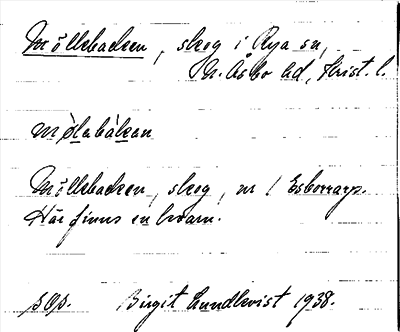 Möllebacken, skog i Rya sn,
N. Åsbo hd, Krist. l.
Möllebacken, skog, nr 1 Esborrarp.
Här finns en kvarn.
Birgit Lundkvist 1938.